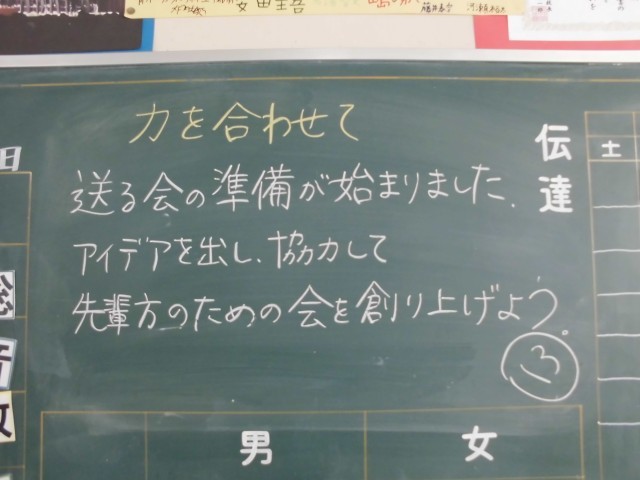 力を合わせて
送る会の準備が始まりました.
アイデアを出し、協力して
先輩方のための会を創り上げよう。
3
伝達
土
日
男
女